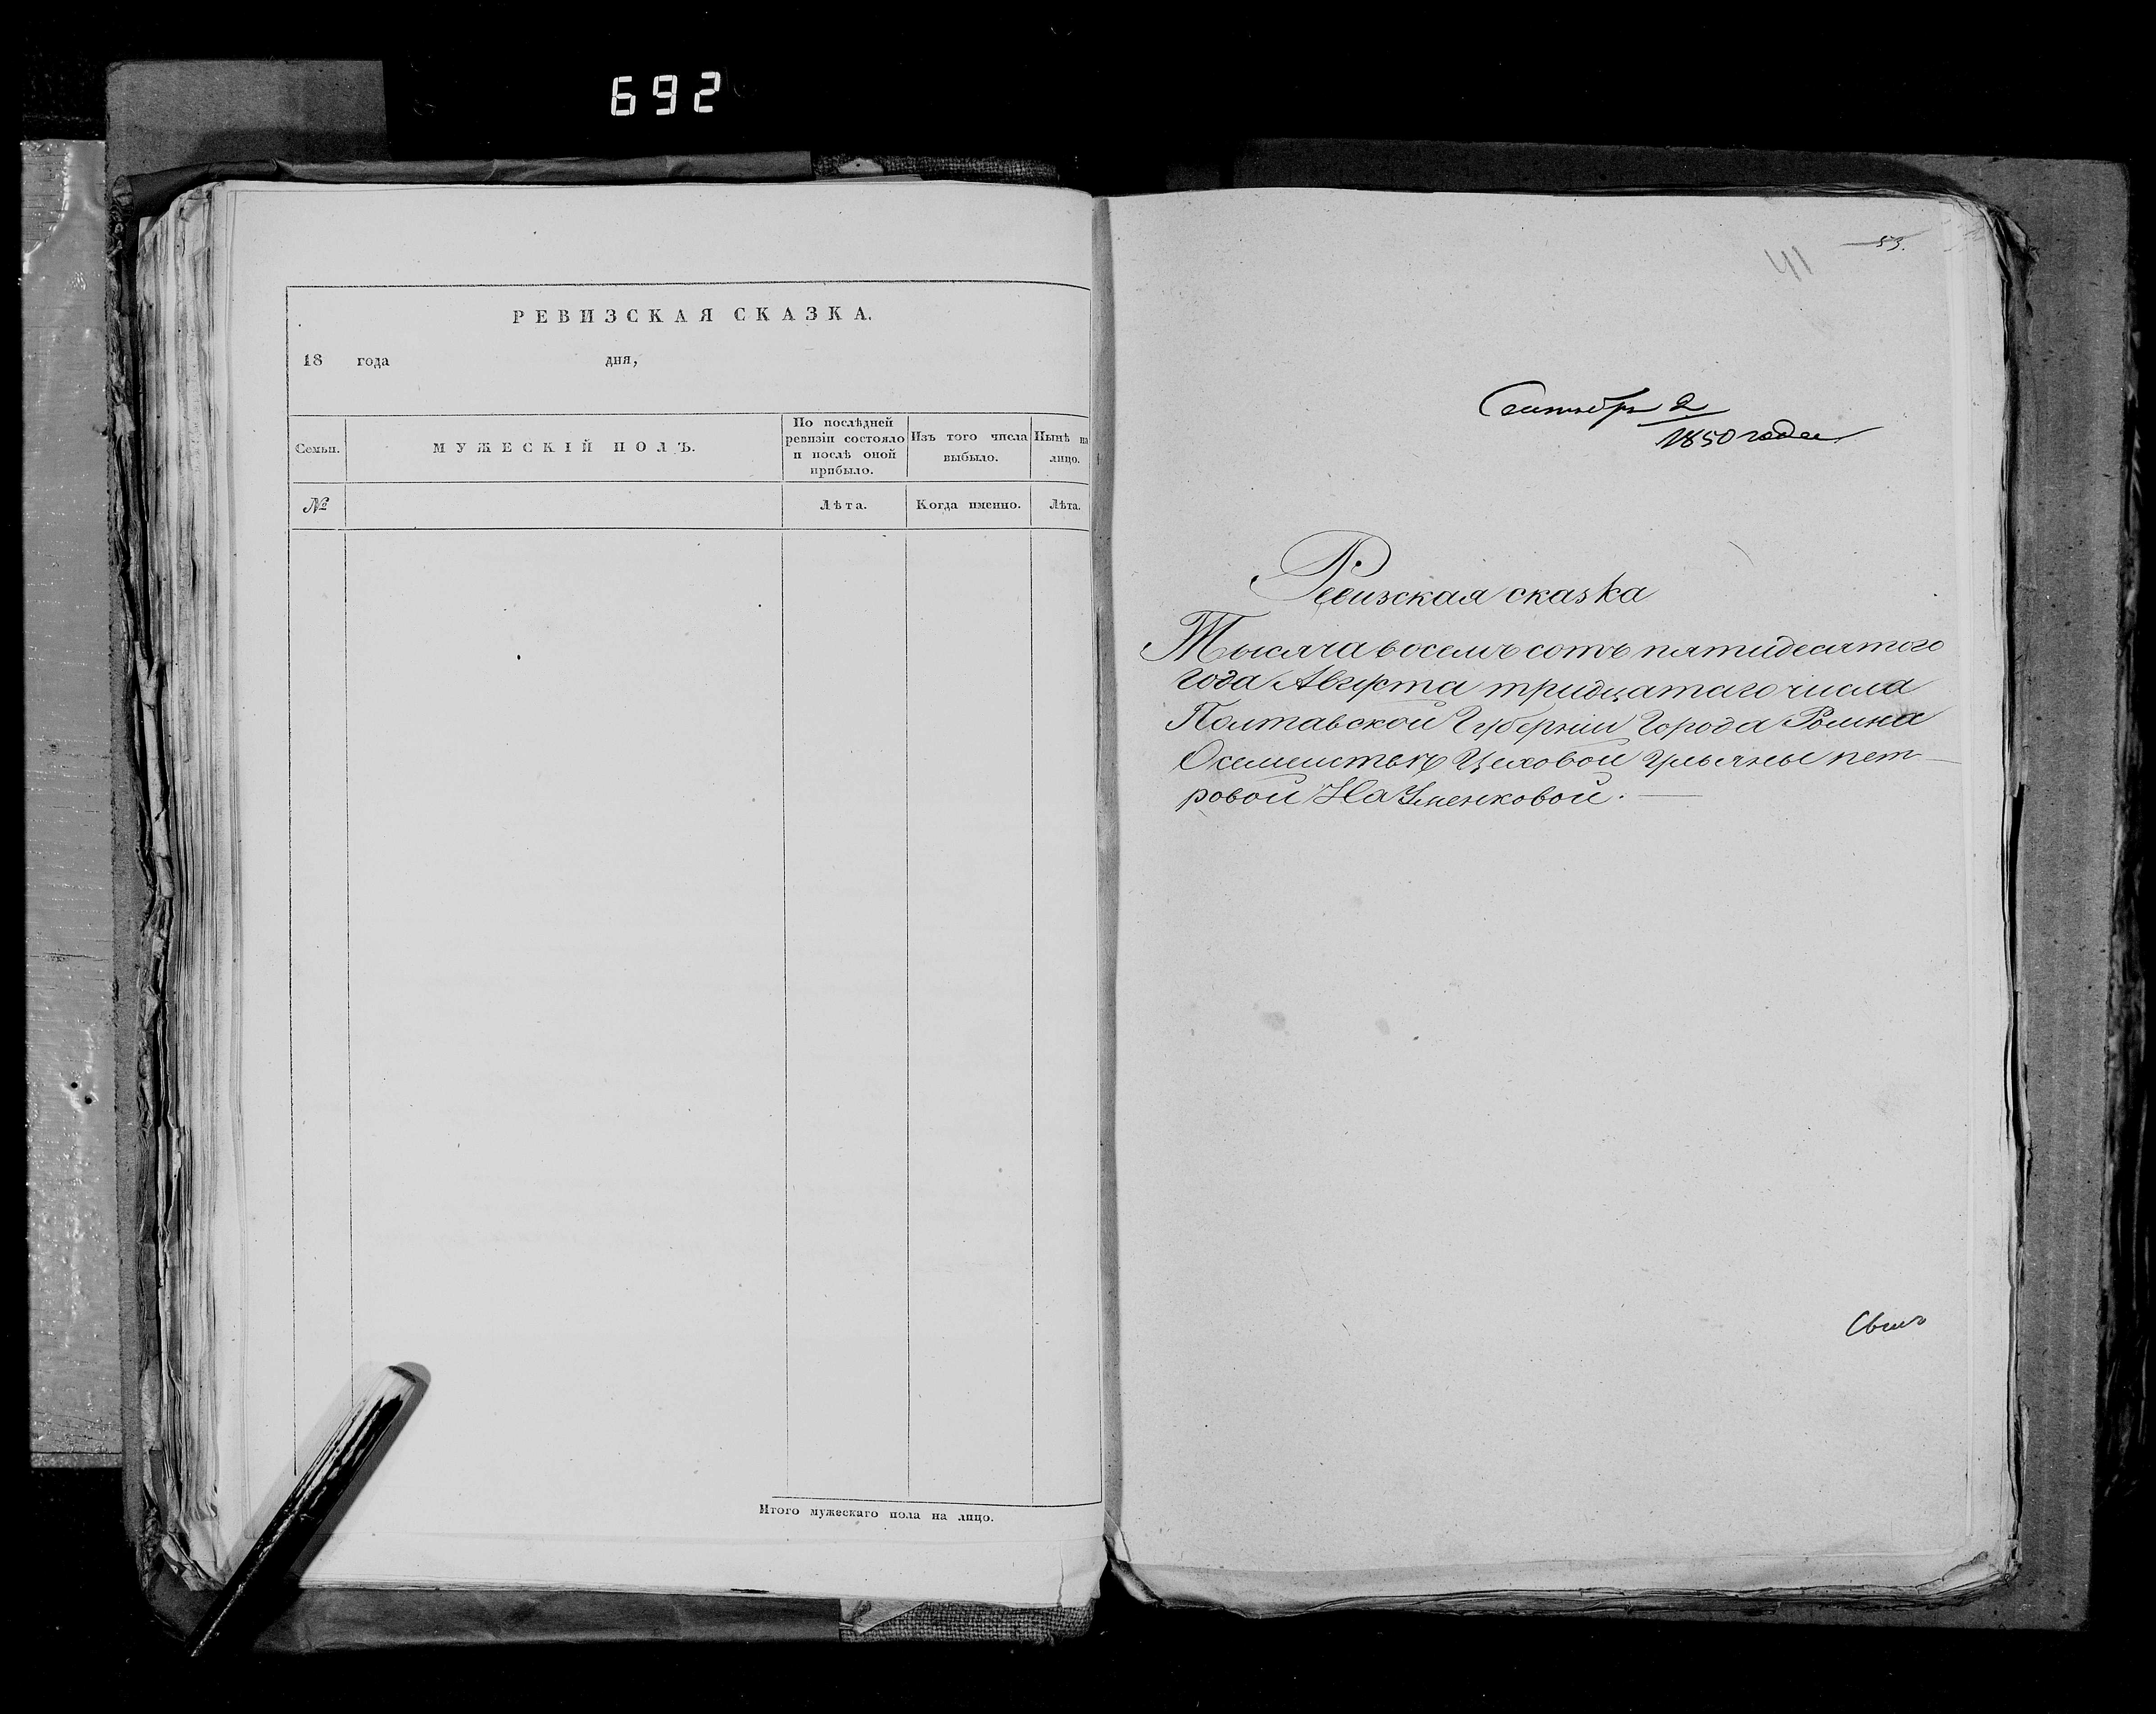 692
РЕВИЗСКАЯ СКАЗКА.
18 года дня,
Семьи.
МУЖЕСКІЙ ПОЛЪ.
По послѣдней ревизіи состояло и послѣ оной прибыло.
Изъ того числа выбыло.
Нынѣ на лицо.
№
Лѣта.
Когда именно.
Лѣта.
Итого мужескаго пола на лицо.
53.
41
Сентября 2
1850 года
Ревизская сказка
Тысяча восемъ сотъ пятидесятого
года Августа тридцатаго числа
Полтавской Губерніи Города Ромна
О семействѣ Цеховой Ульяны пет-
ровой Науменковой.